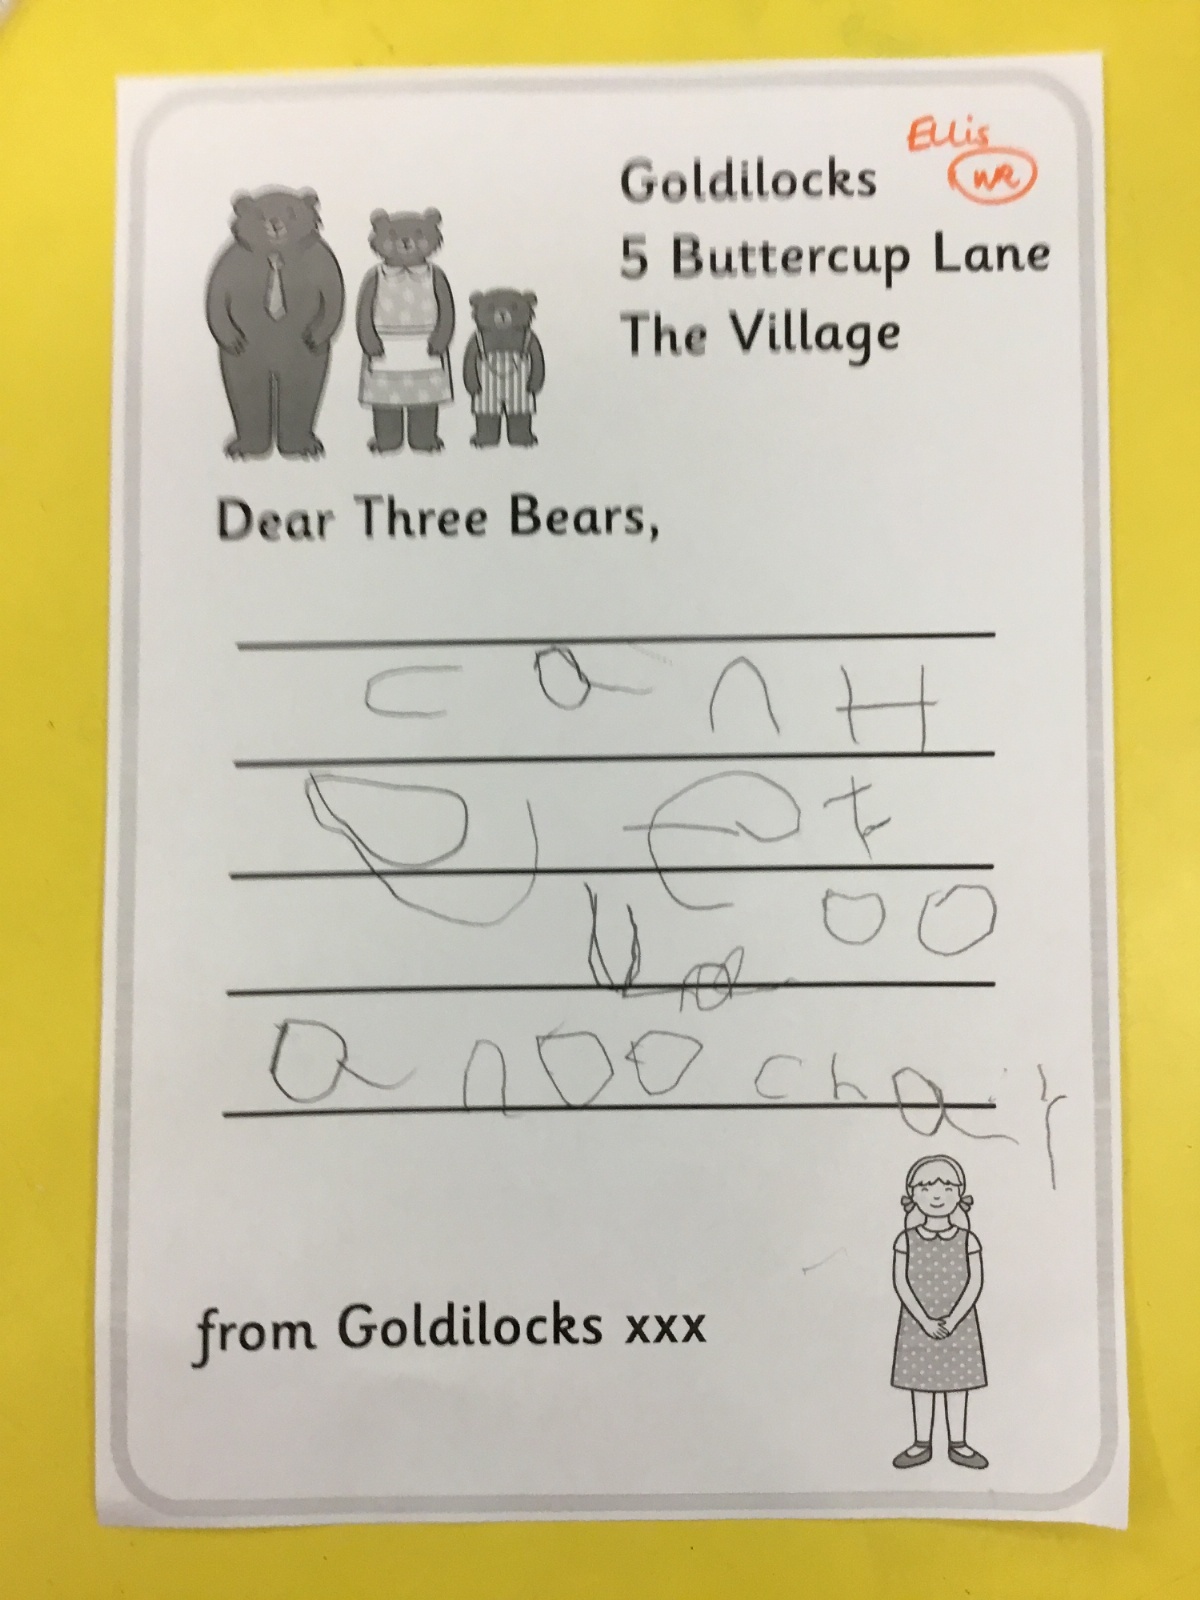 Ellis
WR
Goldilocks
5 Buttercup Lane
The Village
Dear Three Bears,
c a n H
g e t
oo
a n oo chair
from Goldilocks xxx